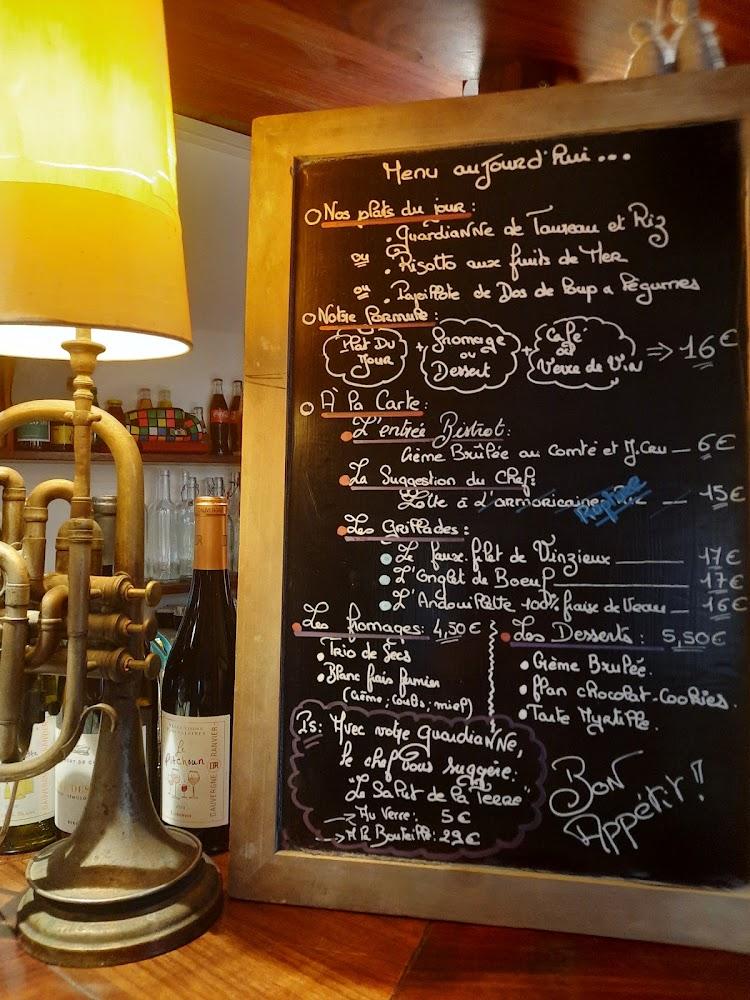 Menu aujourd'hui ...
Nos plats du jour :
. GuardianNe de Taureau et Riz
ou . Risotto aux fruits de Mer
ou . Papillote de Dos de Loup a Légumes
Notre Formule :
Plat Du Jour + fromage ou Dessert + Café ou Verre de Vin ⇒ 16€
À la Carte :
L'entrée Bistrot :
Crème Brûlée au Comté et J.Cru — 6€
La Suggestion du Chef :
Lotte à L'armoricaine — 15€
Rupture
Les Grillades :
Le faux filet de Vinzieux — 17€
L'Onglet de Boeuf — 17€
L'Andouillette 100% fraise de Veau — 16€
Les fromages : 4,50€
Trio de Secs
Blanc frais fermier
(crème, coulis, miel)
Les Desserts : 5,50€
Crème Brulée.
flan chocolat-cookies.
Tarte Myrtille.
Ps : Avec votre GuardianNe,
le chef vous suggère :
"Le Salut de la Terre"
→ Au Verre : 5€
→ A la Bouteille : 29€
Bon
Appétit !
Le
Pitchoun